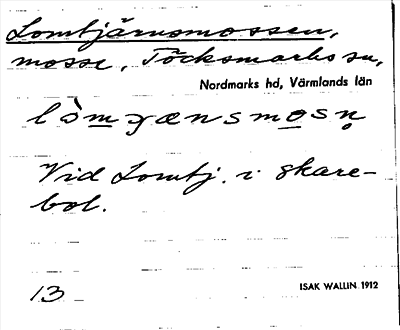 Lomtjärnsmossen,
mosse, Töcksmarks sn,
Nordmarks hd, Värmlands län
Vid Lomtj. i Skare-
bol.
13
ISAK WALLIN 1912